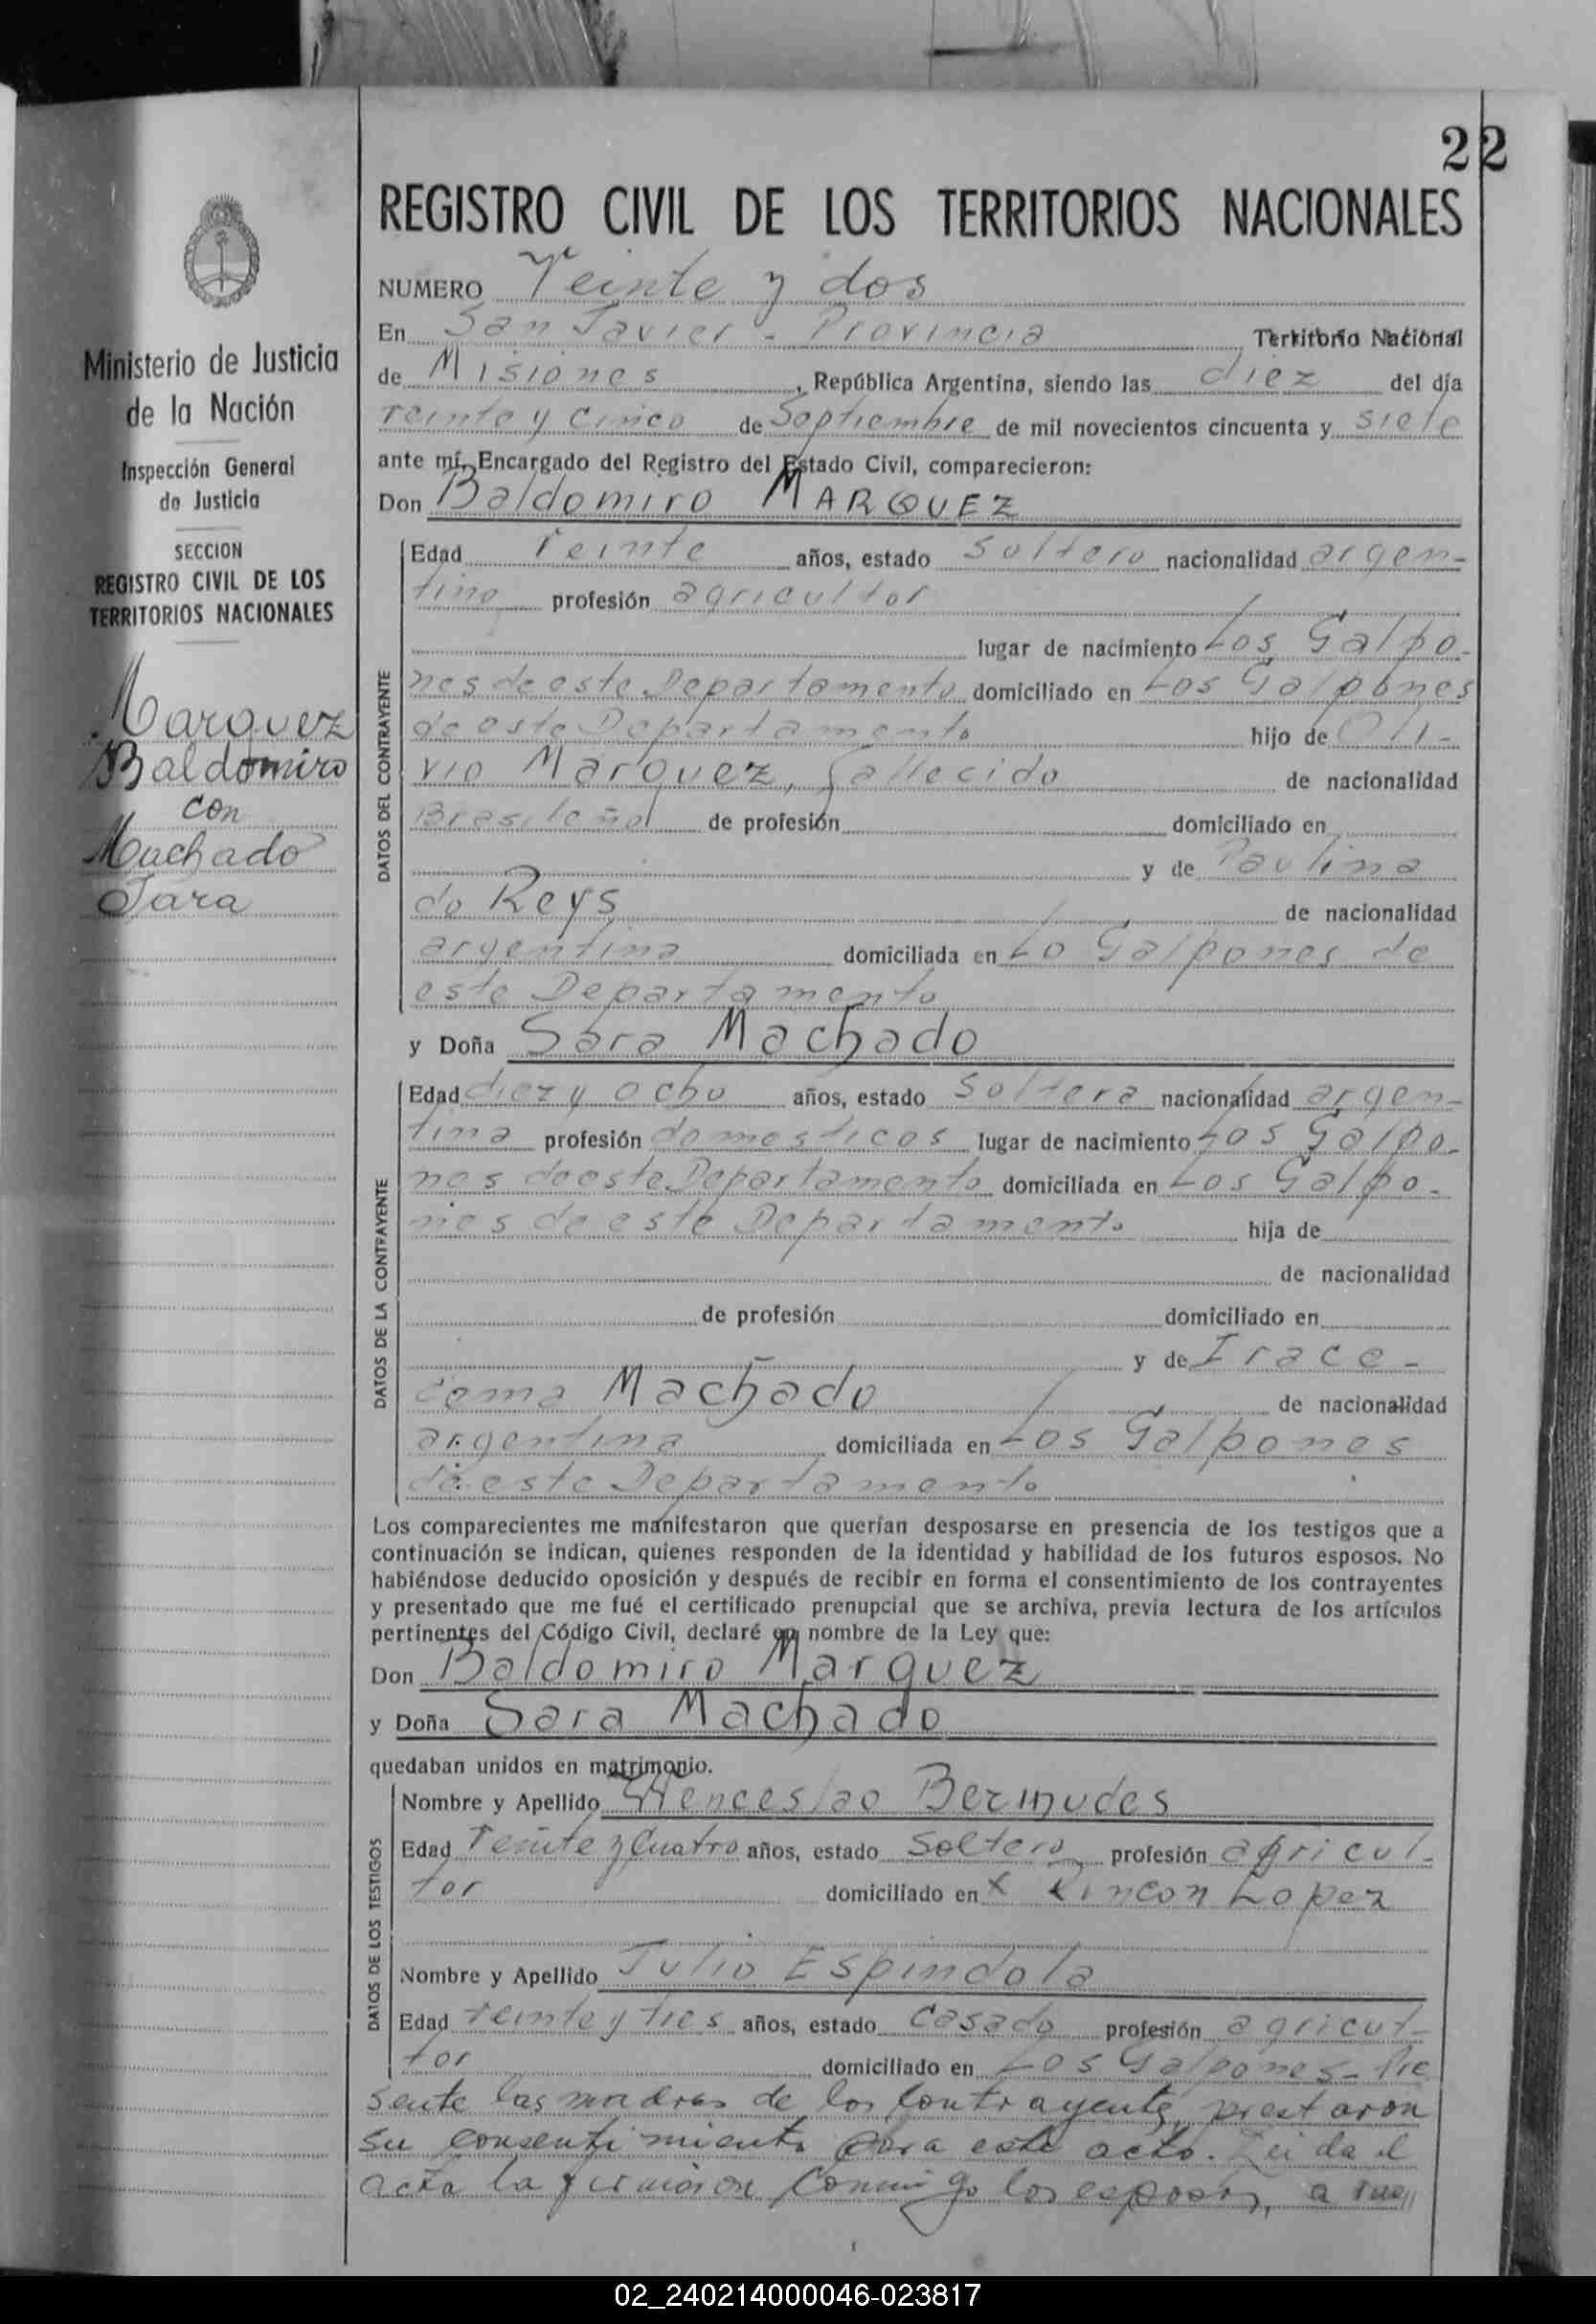 22
REGISTRO CIVIL DE LOS TERRITORIOS NACIONALES
NUMERO Veinte y dos
En San Javier - Provincia Territorio Nacional
de Misiones, República Argentina, siendo las diez del día
veinte y cinco de Septiembre de mil novecientos cincuenta y siete
ante mí, Encargado del Registro del Estado Civil, comparecieron:
Don Baldomiro MARQUEZ
Edad veinte años, estado soltero nacionalidad argen-
tino profesión agricultor
lugar de nacimiento Los Galpo-
nes de este Departamento domiciliado en Los Galpones
de este Departamento hijo de Oli-
vio Marquez, fallecido de nacionalidad
Brasileña de profesión domiciliado en
y de Paulina
de Reys de nacionalidad
argentina domiciliada en Lo Galpones de
este Departamento
y Doña Sara Machado
Edad diez y ocho años, estado soltera nacionalidad argen-
tina profesión domesticos lugar de nacimiento Los Galpo-
nes de este Departamento domiciliada en Los Galpo-
nes de este Departamento hija de
de nacionalidad
de profesión domiciliado en
y de Irace-
cema Machado de nacionalidad
argentina domiciliada en Los Galpones
de este Departamento
Los comparecientes me manifestaron que querían desposarse en presencia de los testigos que a
continuación se indican, quienes responden de la identidad y habilidad de los futuros esposos. No
habiéndose deducido oposición y después de recibir en forma el consentimiento de los contrayentes
y presentado que me fué el certificado prenupcial que se archiva, previa lectura de los artículos
pertinentes del Código Civil, declaré en nombre de la Ley que:
Don Baldomiro Marquez
y Doña Sara Machado
quedaban unidos en matrimonio.
Nombre y Apellido Wenceslao Bermudes
Edad veinte y cuatro años, estado Soltero profesión agricul-
tor domiciliado en Rincon Lopez
Nombre y Apellido Julio Espindola
Edad veinte y tres años, estado casado profesión agricul-
tor domiciliado en Los Galpones- Pre
sente las madres de los contrayentes, prestaron
su consentimiento para este acto. Leida el
acta la firmaron conmigo los esposos, a rue
DATOS DEL CONTRAYENTE
DATOS DE LA CONTRAYENTE
DATOS DE LOS TESTIGOS
Ministerio de Justicia
de la Nación
Inspección General
de Justicia
SECCION
REGISTRO CIVIL DE LOS
TERRITORIOS NACIONALES
Marquez
Baldomiro
con
Machado
Sara
02_240214000046-023817